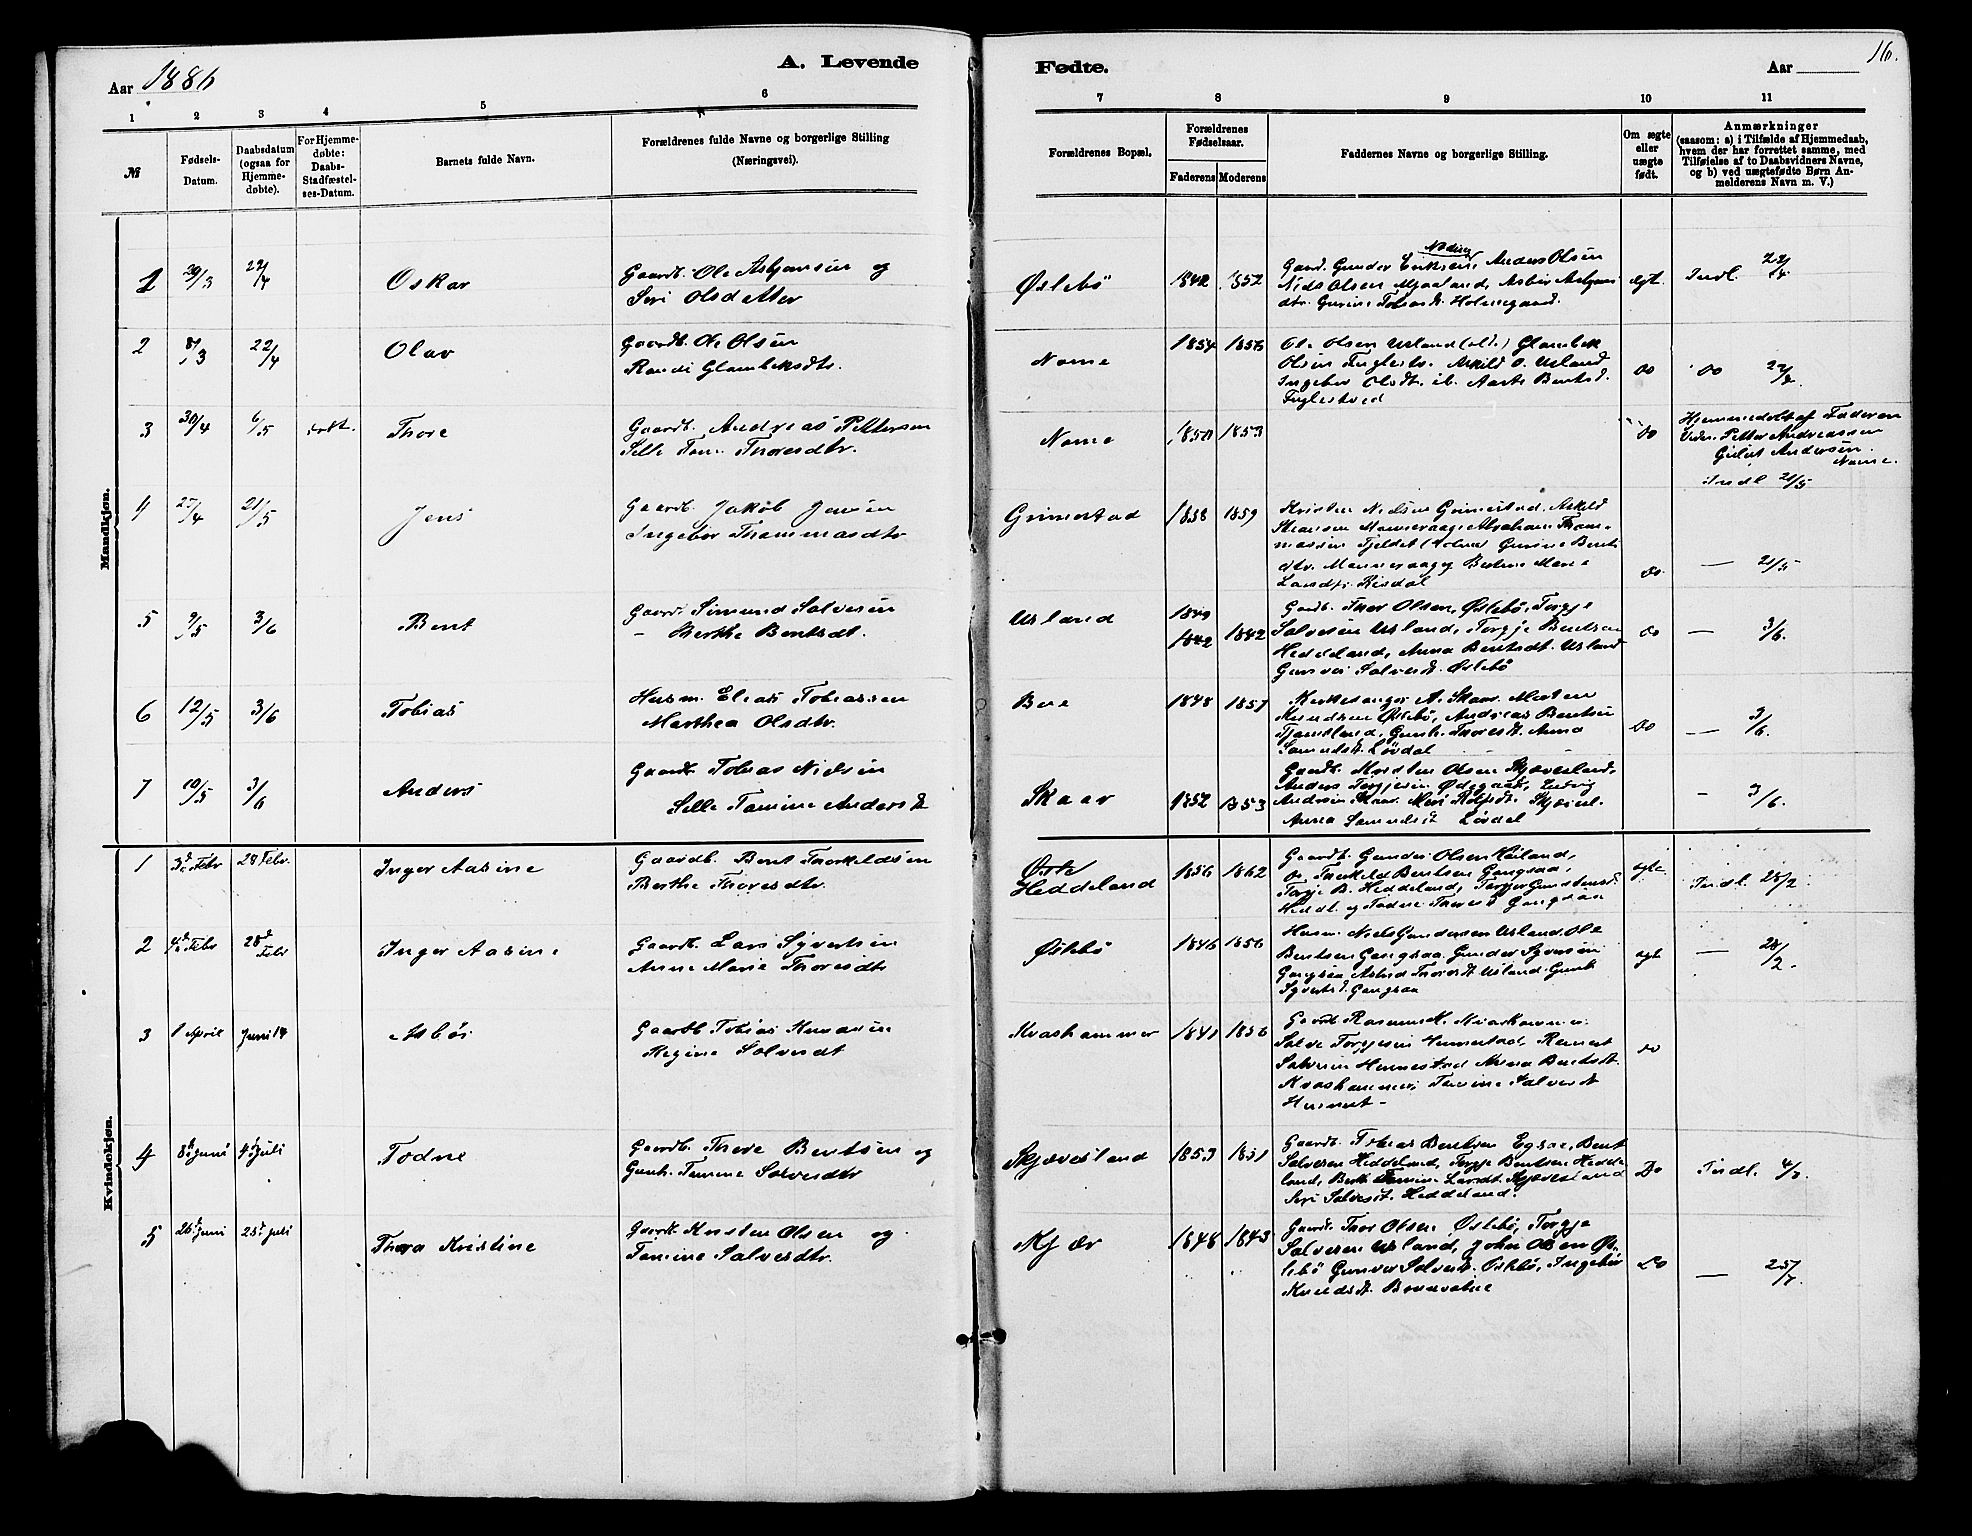 Aar 1886
A. Levende
Fødte.
Aar
16.
1 2 3 4 5 6 7 8 9 10 11
№
Fødsels-
Datum.
Daabsdatum
(ogsaa for
Hjemme-
døbte).
For Hjemme-
døbte:
Daabs-
Stadfæstel-
ses-Datum.
Barnets fulde Navn.
Forældrenes fulde Navne og borgerlige Stilling
(Næringsvei).
Forældrenes Bopæl.
Forældrenes
Fødselsaar.
Faderens Moderens
Faddernes Navne og borgerlige Stilling.
Om ægte
eller
uægte
født.
Anmærkninger
(saasom: a) i Tilfælde af Hjemmedaab,
hvem der har forrettet samme, med
Tilføielse af to Daabsvidners Navne,
og b) ved uægtefødte Børn An-
melderens Navn m. V.)
Mandkjøn.
1 29/3 22/4 Oskar
Gaardb. Ole Asbjørnsen og
Siri Olsdatter
Øslebö 1842 1852
Gaardb. Gunder Eriksen Anders Olsen
Nils Olsen
Holmegaard.
ægt. Indl. 22/4
2 8/3 22/4 Olav
Gaardb. Ole Olsen
Randi Glambeksdtr.
Nome 1854 1856
Ole Olsen Usland Glambek
Olsen Askild O. Usland
Ingebor Olsdt. ib. Aaste Bentsd.
Fuglestved
Do Do 22/4
3 30/4 6/5 Thore
Gaardb. Andreas Pettersen
Sille Tom. Thoresdtr.
Nome 1850 1853
Do
Hjemmedøbt af Faderen
Vidn. Petter Andreassen
Andersen
Nome.
Indl 21/5
4 25/4 21/5 Jens
Gaardb. Jakob Jensen
Ingebor Thommasdtr
Grimestad 1858 1859
Kristen Nielsen Grimestad, Askild
Mannevaag Abraham Thom-
massen Gurine Bents
dtr. Mannevaag
Risdal
Do. — 21/5
5 9/5 3/6 Bent
Gaardb. Simund Salvesen
— Berthe Bentsdt.
Usland 1849
1842 1842
Gaardb. Thor Olsen, Øslebö, Torgje
Salvesen Usland, Torgje Bentsen
Heddeland, Anna Bentsdt. Usland
Gunvor Salvesdt. Øslebö
Do — 3/6.
6 12/5 3/6 Tobias
Husm. Elias Tobiassen
Marthea Olsdtr.
Bue 1848 1857
Kirkesanger A. Skaar. Morten
Knudsen Øslebö, Andreas Bentsen
Gunh. Thoresdt. Anna
Samuelsdt. Lövdal
Do — 3/6.
7 10/5 3/6 Anders
Gaardb. Tobias Nielsen
Sille Tomine Andersdt
Skaar 1852 1853
Gaardb. Kristen Olsen Skjævesland,
Anders Torgjesen Ødegaard, Ludvig
Andersen Skaar. Skjævesl.
Anna Samuelsdt Lövdal
— 3/6.
Kvindekjøn.
1 3d Febr 28 Febr. Inger Aasine
Gaardb. Bent Therkeldsen
Berthe Thoresdtr.
Heddeland 1856 1862
Gaardb. Gunder Olsen Høiland,
Do. Therkeld Bentsen Gangsaa,
Torje B. Heddeland, Torger Gundersd.
Heddl. og Todne Thoresd Gangsaa
ægte Indl. 28/2
2 4d Febr 28d Febr Inger Aasine
Gaardb. Lars Syvertsen
Anne Marie Thoresdtr
Øslebö 1846 1856
Husm. Niels Gundersen Usland. Ole
Bentsen Gangsaa. Gunder Syversen
Gangsaa Astrid Thoresdt Usland. Gunh
Syverts d. Gangsaa
ægt — 28/2.
3 1 April Juni 14 Asbör
Gaardb Tobias Knudsen
Regine Salvesdt
Kvashammer 1841 1856
Gaardb Rasmus K. Kvashammer.
Salve Torgjesen Hunnestad, Reinert
Salvesen Hunnestad Anna Bentsdt.
Kvashammer, Tomine Salvesdt
Hunnest —
Do
4 8d Juni 4d Juli Todne
Gaardb. Thore Bentsen og
Gunh. Tomine Salvesdtr
Skjævesland 1853 1851
Gaardb. Tobias Bentsen Egsaa, Bent
Salvesen Heddeland, Torgje Bentsen Hedde-
land, Berte Tomine Larsdt. Skjævesland
Siri Salvesdt. Heddeland.
Do Indl. 4/7.
5 26d Juni 25d Juli Thora Kristine
Gaardb. Kristen Olsen og
Tomine Salvesdtr.
Kjær 1848 1843
Gaardb. Thor Olsen Øslebö, Torgje
Salvesen Usland, John Olsen Øs-
lebö Gunvor Salvesdt. Øslebö, Ingebör
Knudsdt.
Do — 25/7.